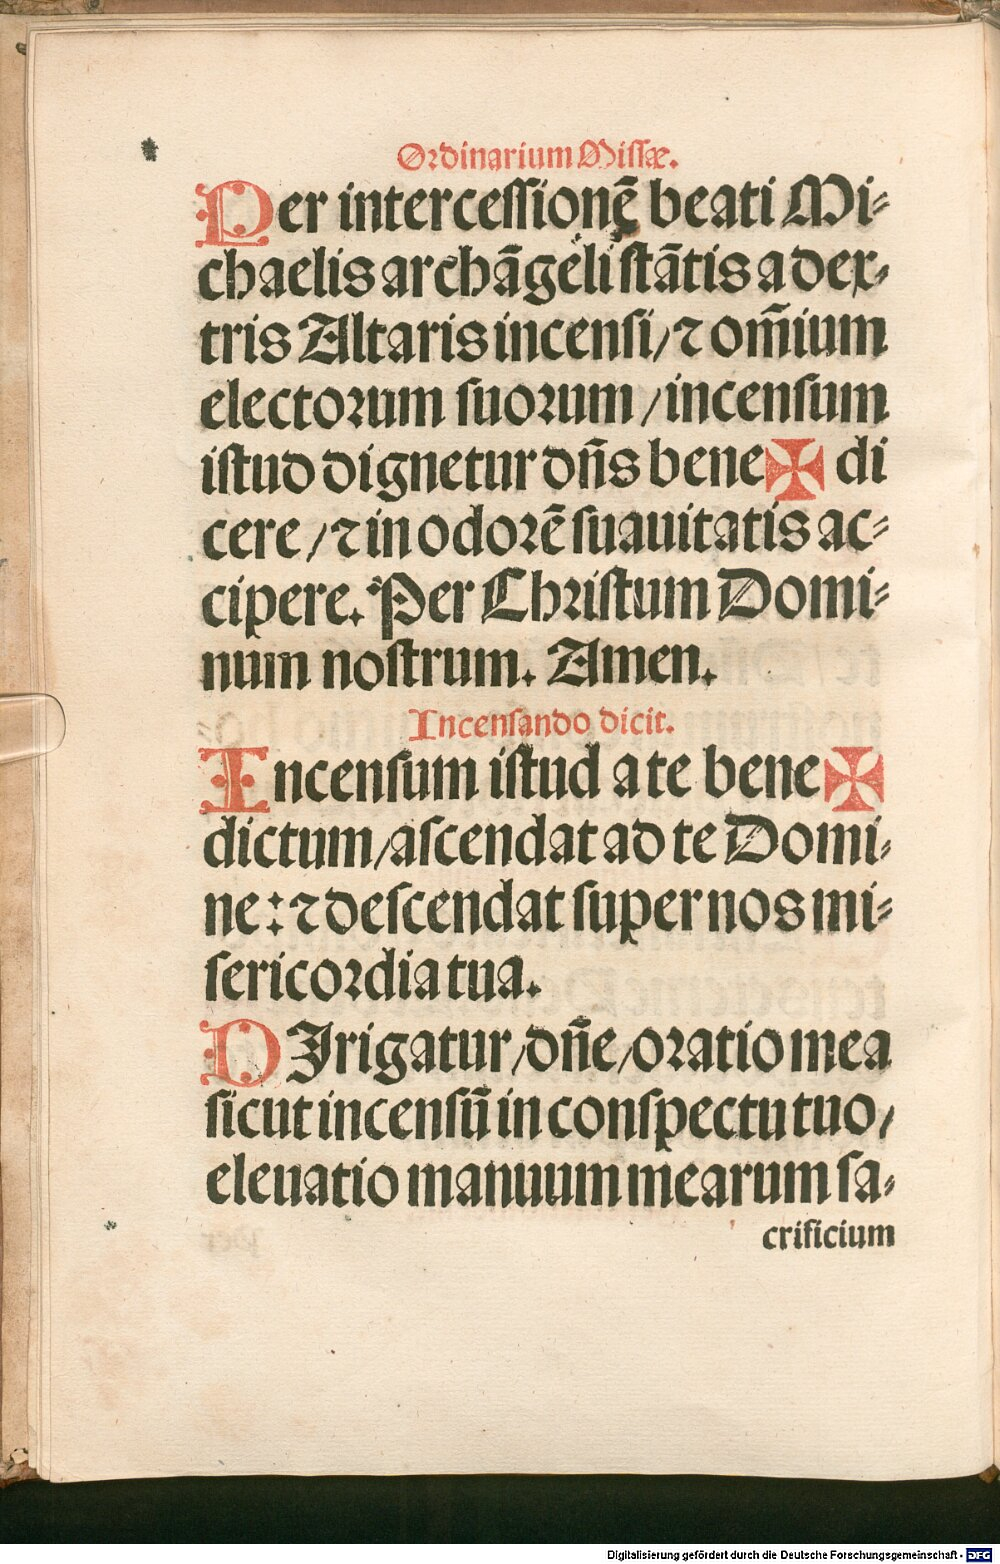 Ordinarium Missæ.
Per intercessionē beati Mi⸗
chaelis archāgeli stātis a dex⸗
tris Altaris incensi/ ⁊ om̄ium
electorum suorum/ incensum
istud dignetur dn̄s bene✠ di
cere/ ⁊ in odorē suauitatis ac⸗
cipere. Per Christum Domi⸗
num nostrum. Amen.
Incensando dicit.
Incensum istud a te bene✠
dictum/ ascendat ad te Domi⸗
ne: ⁊ descendat super nos mi⸗
sericordia tua.
DIrigatur/ dn̄e/ oratio mea
sicut incensū in conspectu tuo/
eleuatio manuum mearum sa⸗
crificium
Digitalisierung gefördert durch die Deutsche Forschungsgemeinschaft - DFG